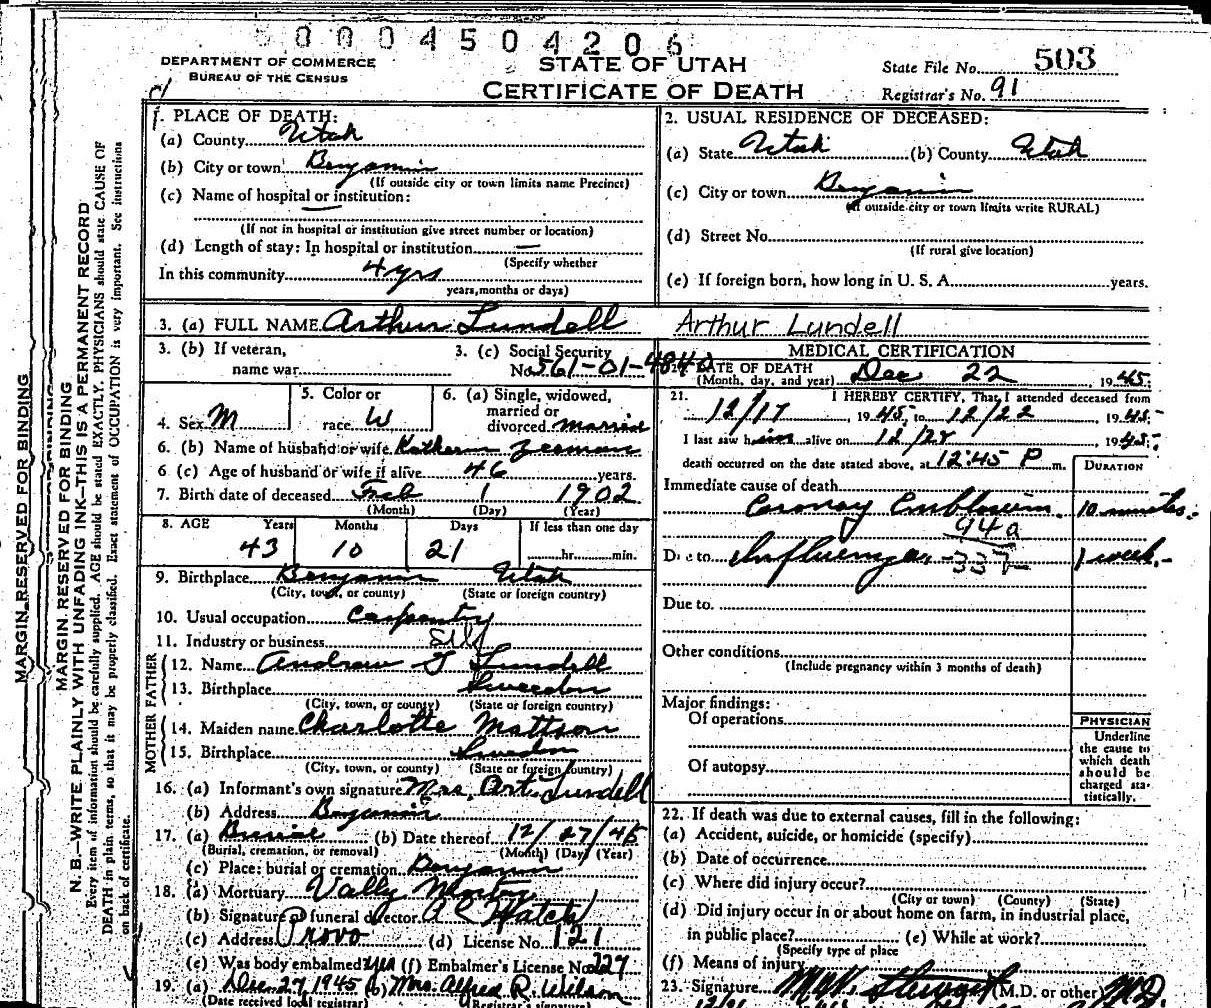 0004504206
DEPARTMENT OF COMMERCE
BUREAU OF THE CENSUS
STATE OF UTAH
CERTIFICATE OF DEATH
State File No. 503
Registrar's No. 91
MARGIN RESERVED FOR BINDING
MARGIN RESERVED FOR BINDING
N. B.—WRITE PLAINLY WITH UNFADING INK—THIS IS A PERMANENT RECORD
Every item of information should be carefully supplied. AGE should be stated EXACTLY. PHYSICIANS should state CAUSE OF
DEATH in plain terms, so that it may be properly classified. Exact statement of OCCUPATION is very important. See instructions
on back of certificate.
1. PLACE OF DEATH:
(a) County Utah
(b) City or town Benjamin
(If outside city or town limits name Precinct)
(c) Name of hospital or institution: —
(If not in hospital or institution give street number or location)
(d) Length of stay: In hospital or institution —
(Specify whether
In this community 4 yrs
years, months or days)
2. USUAL RESIDENCE OF DECEASED:
(a) State Utah (b) County Utah
(c) City or town Benjamin
(If outside city or town limits write RURAL)
(d) Street No.
(If rural give location)
(e) If foreign born, how long in U. S. A. years.
3. (a) FULL NAME Arthur Lundell Arthur Lundell
3. (b) If veteran,
name war
3. (c) Social Security
No. 561-01-4840
4. Sex M
5. Color or
race W
6. (a) Single, widowed,
married or
divorced married
6. (b) Name of husband or wife Zeeman
6 (c) Age of husband or wife if alive 46 years.
7. Birth date of deceased Feb 1 1902
(Month) (Day) (Year)
8. AGE Years Months Days If less than one day
43 10 21 hr. min.
9. Birthplace Benjamin Utah
(City, town, or county) (State or foreign country)
10. Usual occupation Carpentry
11. Industry or business Self
FATHER
12. Name Andrew G Lundell
13. Birthplace Sweedon
(City, town, or county) (State or foreign country)
MOTHER
14. Maiden name Charlotte Mattson
15. Birthplace Sweden
(City, town, or county) (State or foreign country)
16. (a) Informant's own signature Mrs. Art Lundell
(b) Address Benjamin
17. (a) Burial (b) Date thereof 12/27/45
(Burial, cremation, or removal) (Month) (Day) (Year)
(c) Place: burial or cremation Benjamin
18. (a) Mortuary Vally
(b) Signature of funeral director A C Hatch
(c) Address Provo (d) License No. 121
(e) Was body embalmed yes (f) Embalmer's License No. 227
19. (a) Dec 27 1945 (b) Mrs. Alfred R. Wilson
(Date received local registrar) Registrar's signature
MEDICAL CERTIFICATION
20. DATE OF DEATH
(Month, day, and year) Dec 22, 1945
21. I HEREBY CERTIFY, That I attended deceased from
12/17 1945 to 12/22 1945
I last saw him alive on 12/22 1945
death occurred on the date stated above, at 12:45 P m.
DURATION
Immediate cause of death
Coronary Embolism 10 minutes
94a
Due to Influenza 1 week
33
Due to
Other conditions
(Include pregnancy within 3 months of death)
Major findings:
Of operations
Of autopsy
PHYSICIAN
Underline
the cause to
which death
should be
charged sta-
tistically.
22. If death was due to external causes, fill in the following:
(a) Accident, suicide, or homicide (specify)
(b) Date of occurrence
(c) Where did injury occur?
(City or town) (County) (State)
(d) Did injury occur in or about home on farm, in industrial place,
in public place? (e) While at work?
(Specify type of place
(f) Means of injury
23. Signature (M.D. or other) MD